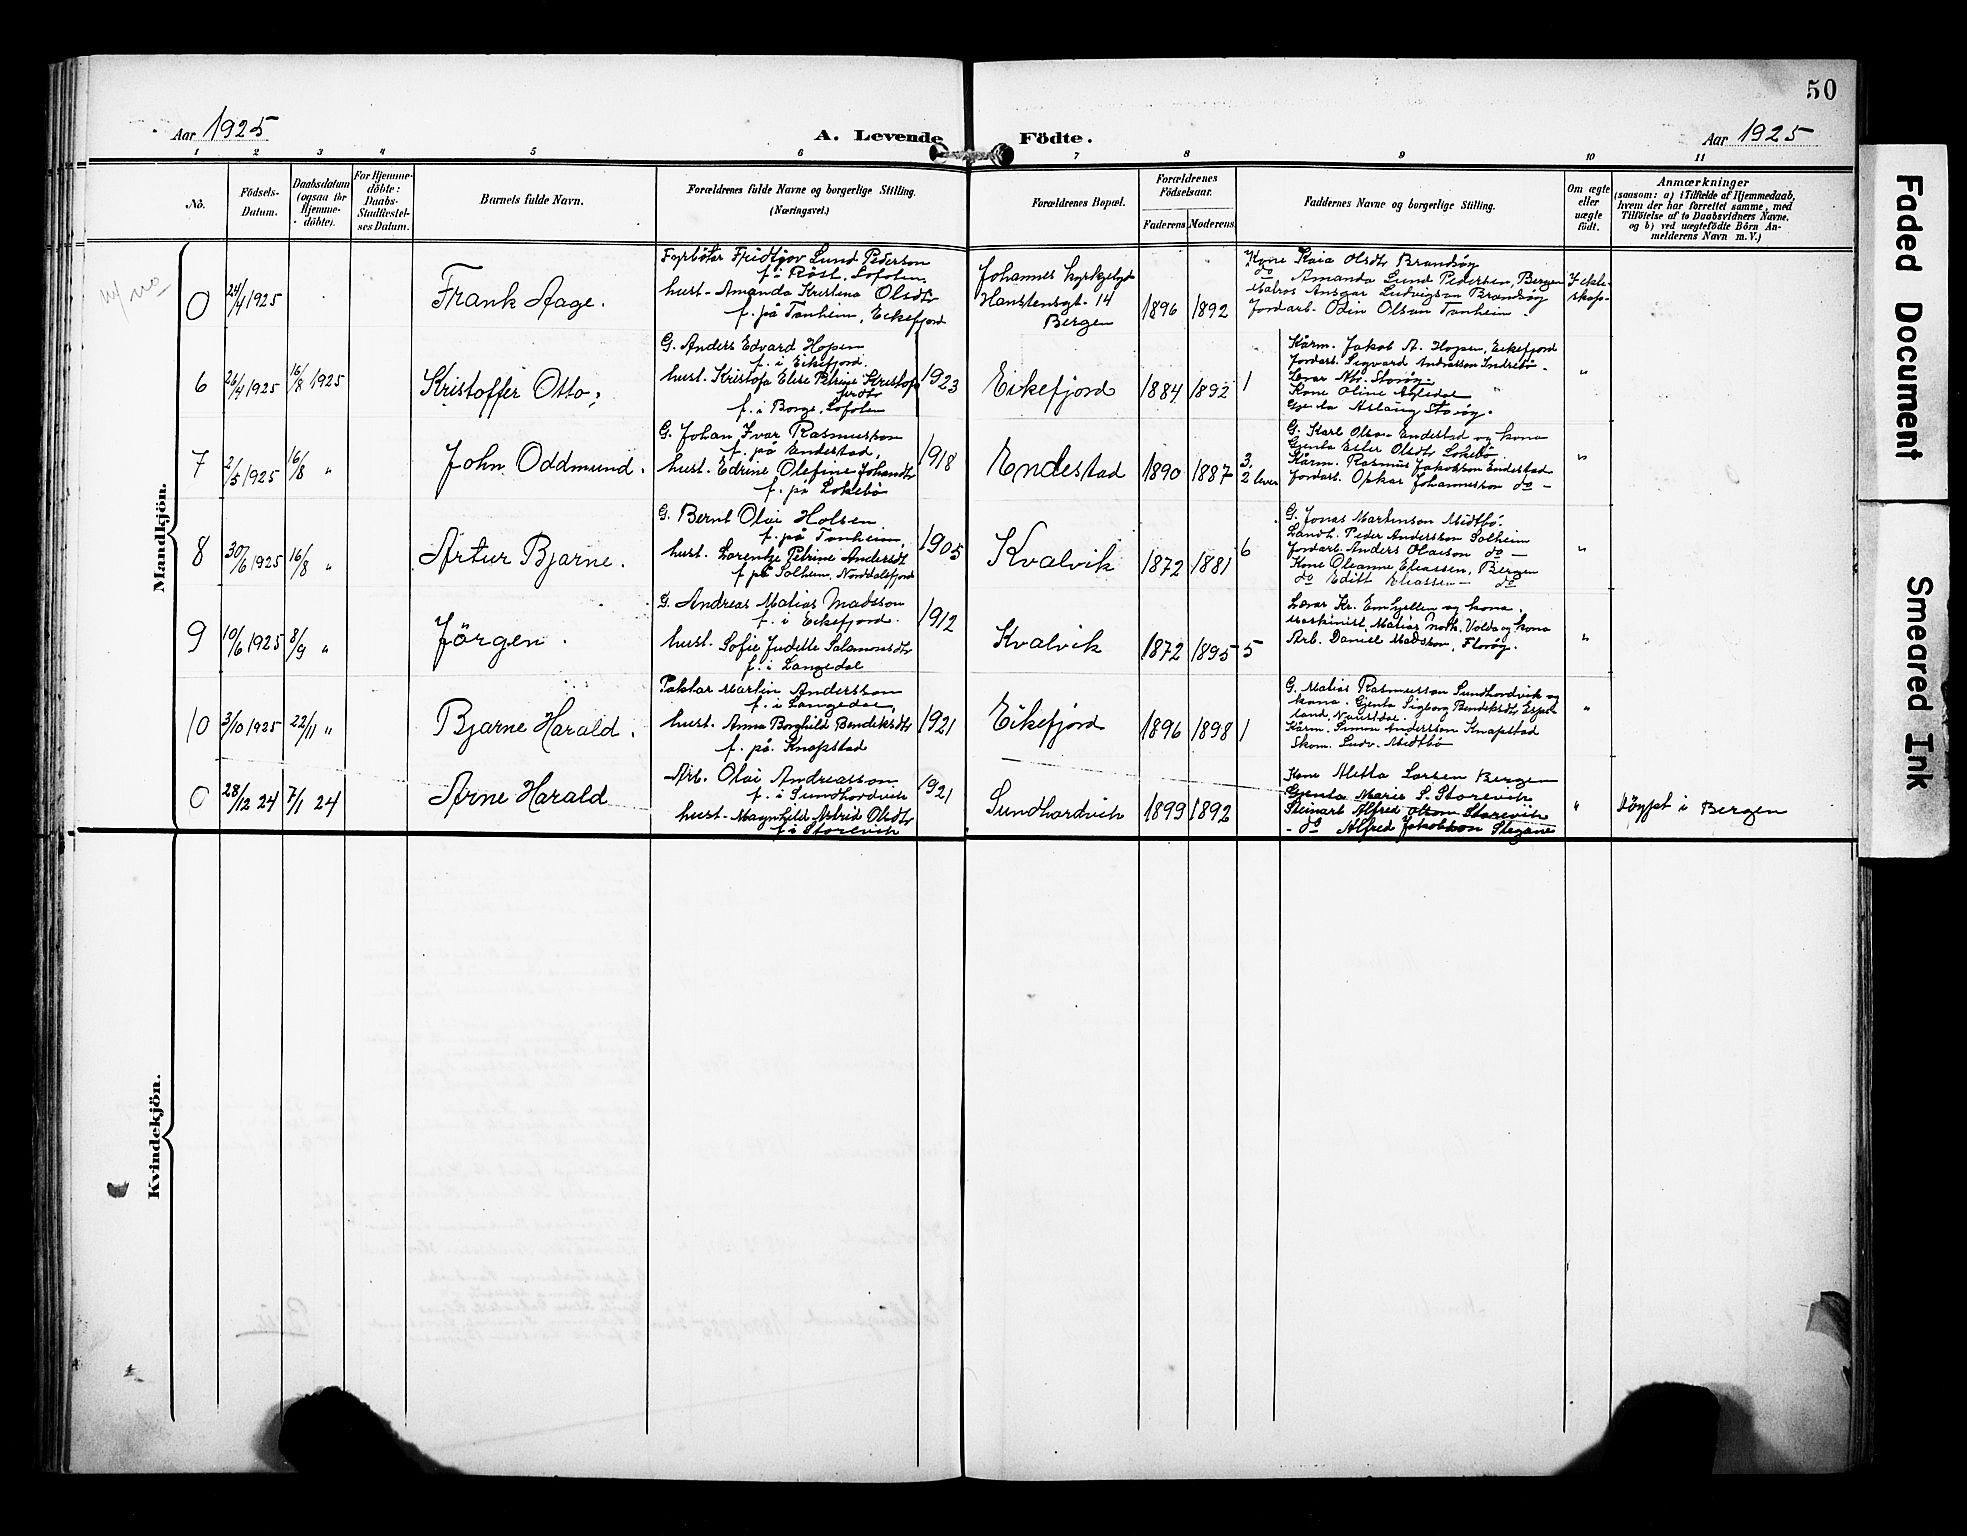 50
Aar 1925
A. Levende Födte.
Aar 1925
1 2 3 4 5 6 7 8 9 10 11
No.
Födsels-Datum.
Daabsdatum (ogsaa for Hjemme-döbte).
For Hjemme-döbte: Daabs-Stadfæstel-ses Datum.
Barnets fulde Navn.
Forældrenes fulde Navne og borgerlige Stilling.
(Næringsvei.)
Forældrenes Bopæl.
Forældrenes Födselsaar.
Faderens Moderens
Faddernes Navne og borgerlige Stilling.
Om ægte eller uægte födt.
Anmærkninger
(saasom: a) i Tilfælde af Hjemmedaab,
hvem der har forrettet samme, med
Tilföielse af to Daabsvidners Navne,
og b) ved uægtefödte Börn An-
melderens Navn m. V.)
Mandkjön.
0 24/4 1925
Frank Aage.
Fyrböter Fridtjov Lund Pederson
f. i Röst, Lofoten.
hust. Amanda Kristina Olsdtr
f. på Tonheim, Eikefjord
Hanstensgt. 14
Bergen
1896 1892
Kone Kaia Olsdtr Brandsöy
do Amanda Lund Pedersen, Bergen
Matros Ansgar Ludvigson Brandsöy
Jordarb. Odin Olsen Tonheim.
I ekte-skap
6 26/4 1925 16/8 1925
Kristoffer Otto.
G. Anders Edvard Hopen
f. i Eikefjord.
hust. Kristofa Elise Petrine Kristofferdtr
f. i Borge, Lofoten
1923
Eikefjord
1884 1892 1
Kårm. Jakob A. Hopen, Eikefjord
Jordarb. Sigvard Andreasson Indrebö
"
7 2/5 1925 16/8 "
John Oddmund.
G. Johan Ivar Rasmusson
f. på Endestad,
hust. Edrine Olefine Johandtr
f. på Lokebö
1918
Endestad
1890 1887 3, 2 lever
G. Karl Olson Endestad og kona
Gjenta Ester Olsdtr Lokebö
Kårm. Rasmus Jakobson Endestad
Jordarb. Oskar Johannesson do -
"
8 30/6 1925 16/8 "
Artur Bjarne.
G. Bernt Olai Holsen
f. på Tonheim,
hust. Lorentze Petrine Andersdtr
f. på Solheim, Norddalsfjord
1905
Kvalvik
1872 1881 6
G. Jonas Martinson Midtbö.
Landh. Peder Andersson Solheim
Jordarb. Anders Olaison do -
Kone Oleanne Eliassen, Bergen
do Edith Eliassen - do
"
9 10/6 1925 8/9 "
Jörgen.
G. Andreas Matias Madsson
f. i Eikefjord.
hust. Sofie Judette Salamonsdtr
f. i Langedal
1912
Kvalvik
1872 1895 5
Maskinist Matias Nork, Volda og kona
Arb. Daniel Madsson, Floröy.
"
10 3/10 1925 22/11 "
Bjarne Harald.
Martin Andersson
f. i Langedal,
hust. Anna Borghild Bendiksdtr
f. på Knapstad
1921
Eikefjord
1896 1898 1
G. Matias Rasmusson Sundhordvik og
kona. Gjenta Sigborg Bendiksdtr Espe-
land, Naustdal.
Kårm. Simon Andersson Knapstad
Skom. Ludv. Midtbö
"
0 28/12 24 7/1 24
Arne Harald
Arb. Olai Andreasson
f. i Sundhordvik
hust. Magnhild Astrid Olsdtr
f. i Storevik
1921
Sundhordvik
1899 1892
Kone Aletta Larsen Bergen
Gjenta Marie S. Storevik
Steinarb. Alfred Olson Storevik
- do Alfred Jakobson Stegane
"
Döypt i Bergen
Kvindekjön.
Faded Document
Smeared Ink